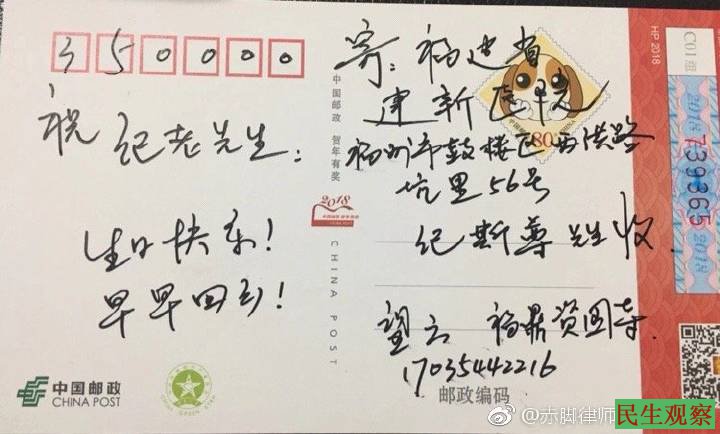 350000
祝纪老先生:
生日快乐!
早早回家!
寄:福建省
建新医院
福州市鼓楼区西洪路
坑里56号
纪斯尊先生收
望云 福鼎资国寺
17035442216
邮政编码
中国邮政 贺年有奖
2018
CHINA POST
80
中国邮政
CHINA POST
HP 2018
C01组
2018
739365
2018
@赤脚律师
民生观察